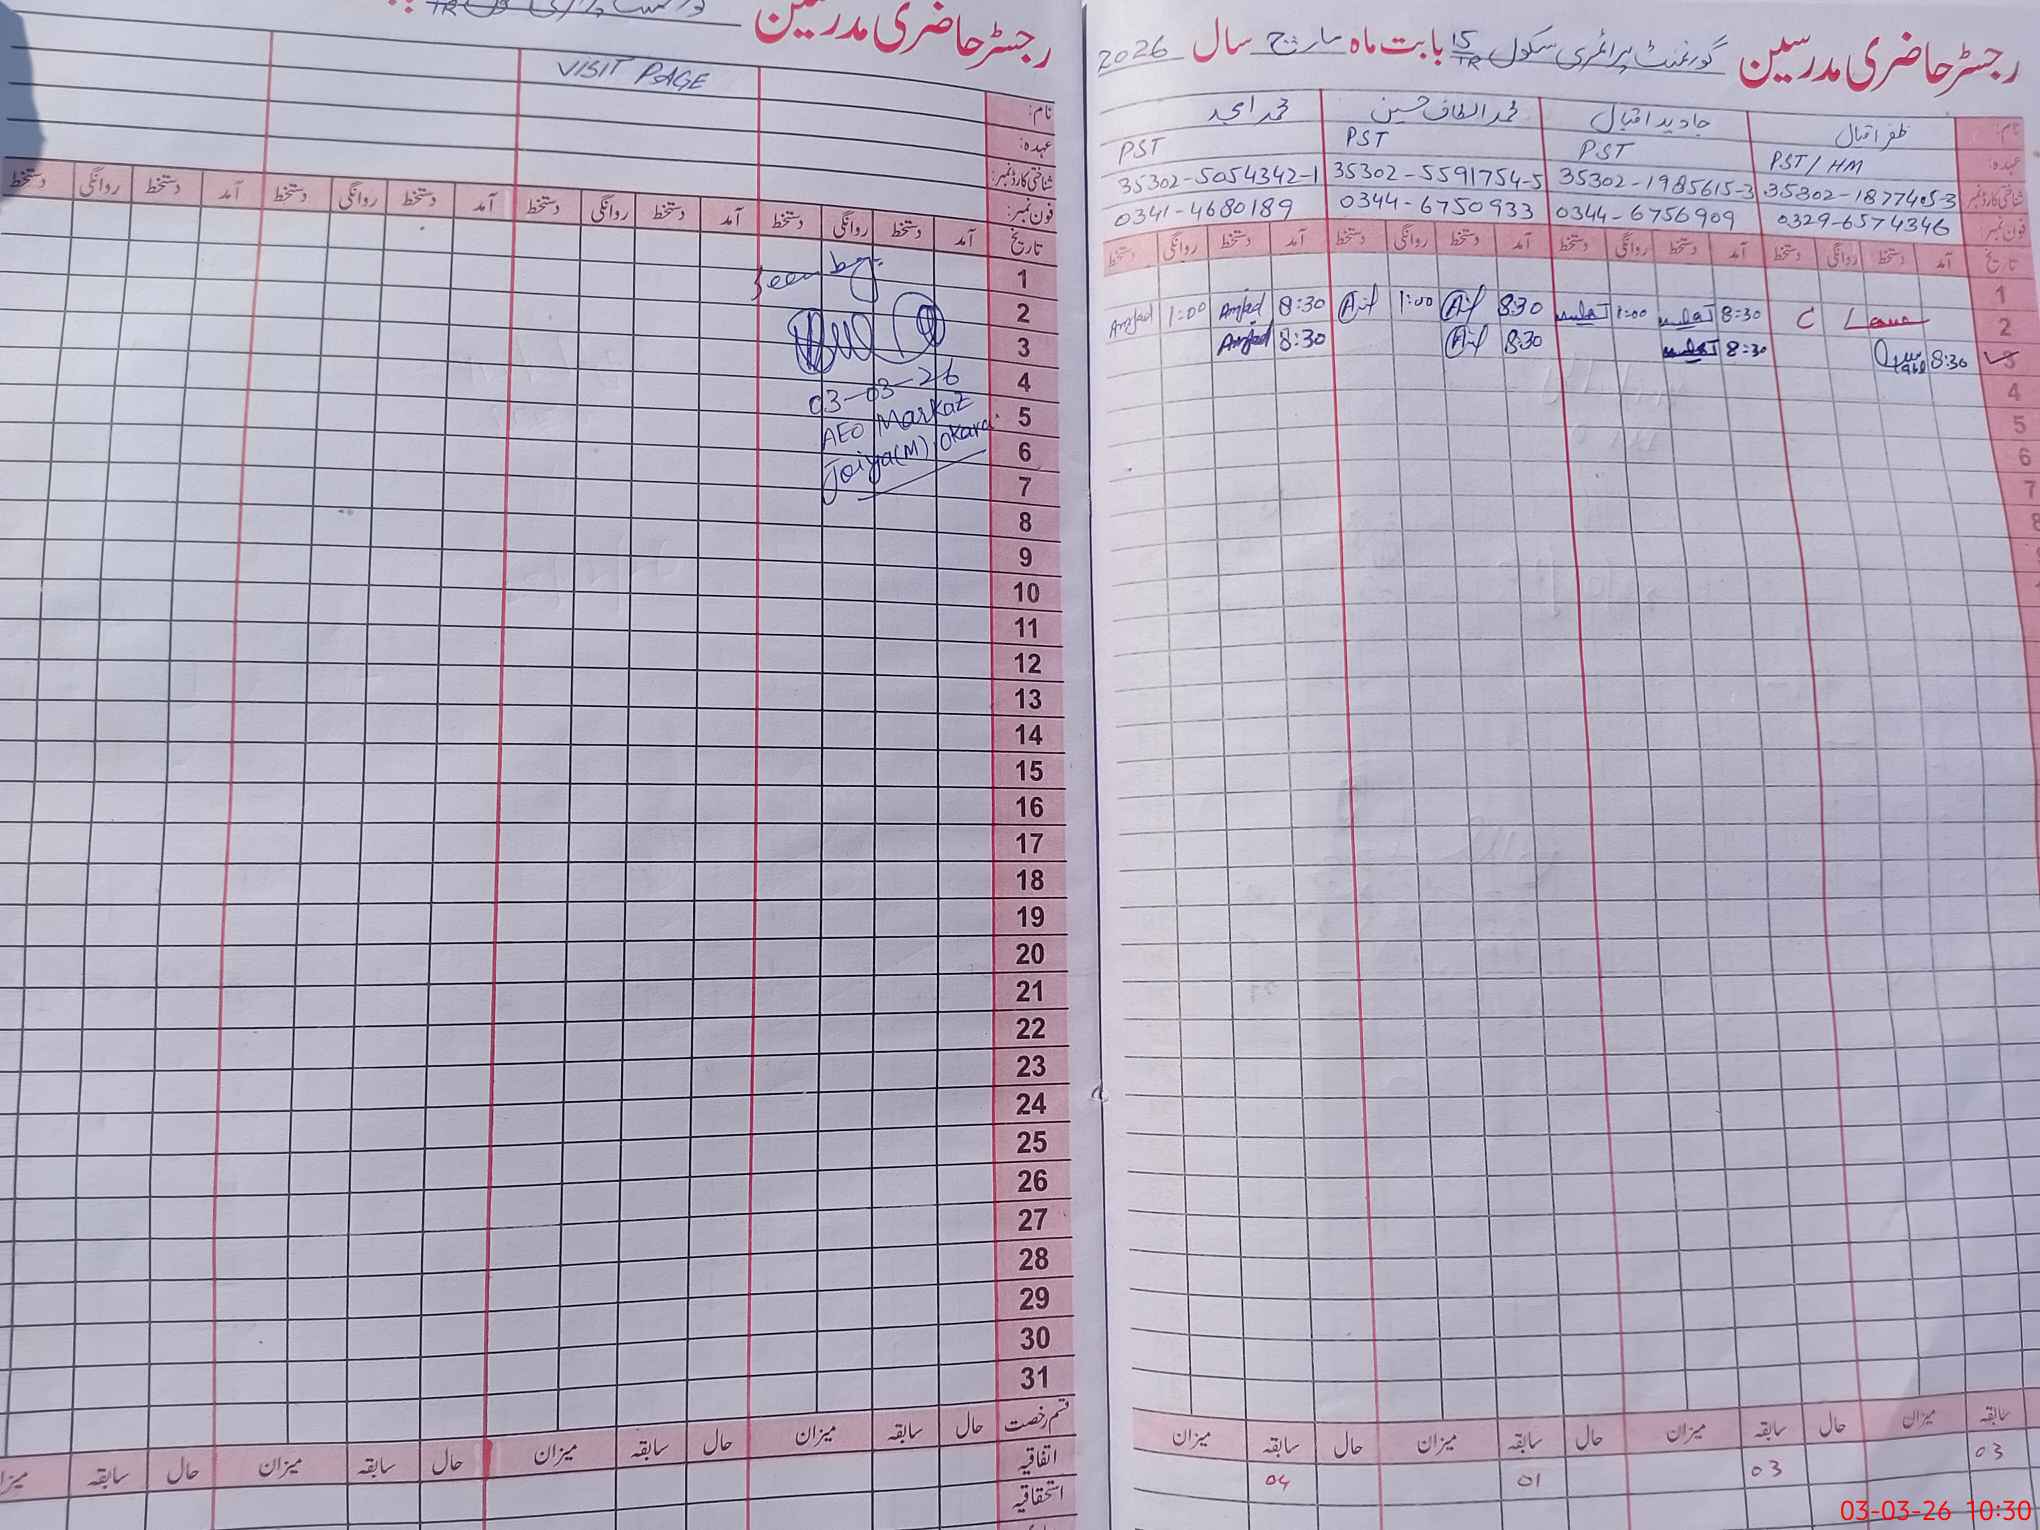 رجسٹر حاضری مدرسین گورنمنٹ پرائمری سکول 15/TR بابت ماہ مارچ سال 2026
نام: ظفر اقبال جاوید اقبال محمد الطاف حسین محمد امجد
عہدہ: PST/HM PST PST PST
شناختی کارڈ نمبر: 35302-1877405-3 35302-1985615-3 35302-5591754-5 35302-5054342-1
فون نمبر: 0329-6574346 0344-6756909 0344-6750933 0341-4680189
تاریخ آمد دستخط روانگی دستخط آمد دستخط روانگی دستخط آمد دستخط روانگی دستخط آمد دستخط روانگی دستخط
1
2 Leave C 8:30 1:00 8:30 1:00 8:30 Amjad 1:00 Amjad
3 8:30 8:30 8:30 8:30 Amjad
4
5
6
7
8
سابقہ میزان حال سابقہ میزان حال سابقہ میزان حال سابقہ میزان
03 03 01 04
رجسٹر حاضری مدرسین
VISIT PAGE
نام:
عہدہ:
شناختی کارڈ نمبر:
فون نمبر:
تاریخ آمد دستخط روانگی دستخط آمد دستخط روانگی دستخط آمد دستخط روانگی دستخط آمد دستخط روانگی دستخط
Seen by:
03-03-26
AEO Markaz
Joiya(M) Okara
1
2
3
4
5
6
7
8
9
10
11
12
13
14
15
16
17
18
19
20
21
22
23
24
25
26
27
28
29
30
31
قسم رخصت حال سابقہ میزان حال سابقہ میزان حال سابقہ میزان حال سابقہ میزان
اتفاقیہ
استحقاقیہ
03-03-26 10:30